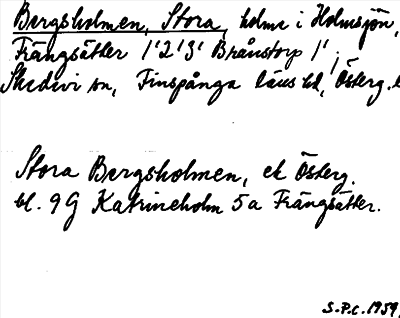 Bergsholmen, Stora, holme i Holmsjön,
Frängsätter 1'2'3' Brånstorp 1',
Skedevi sn, Finspånga läns hd, Österg. l
Stora Bergsholmen, ek Österg.
bl. 9 G Katrineholm 5a Frängsätter.
S.P.C. 1959.